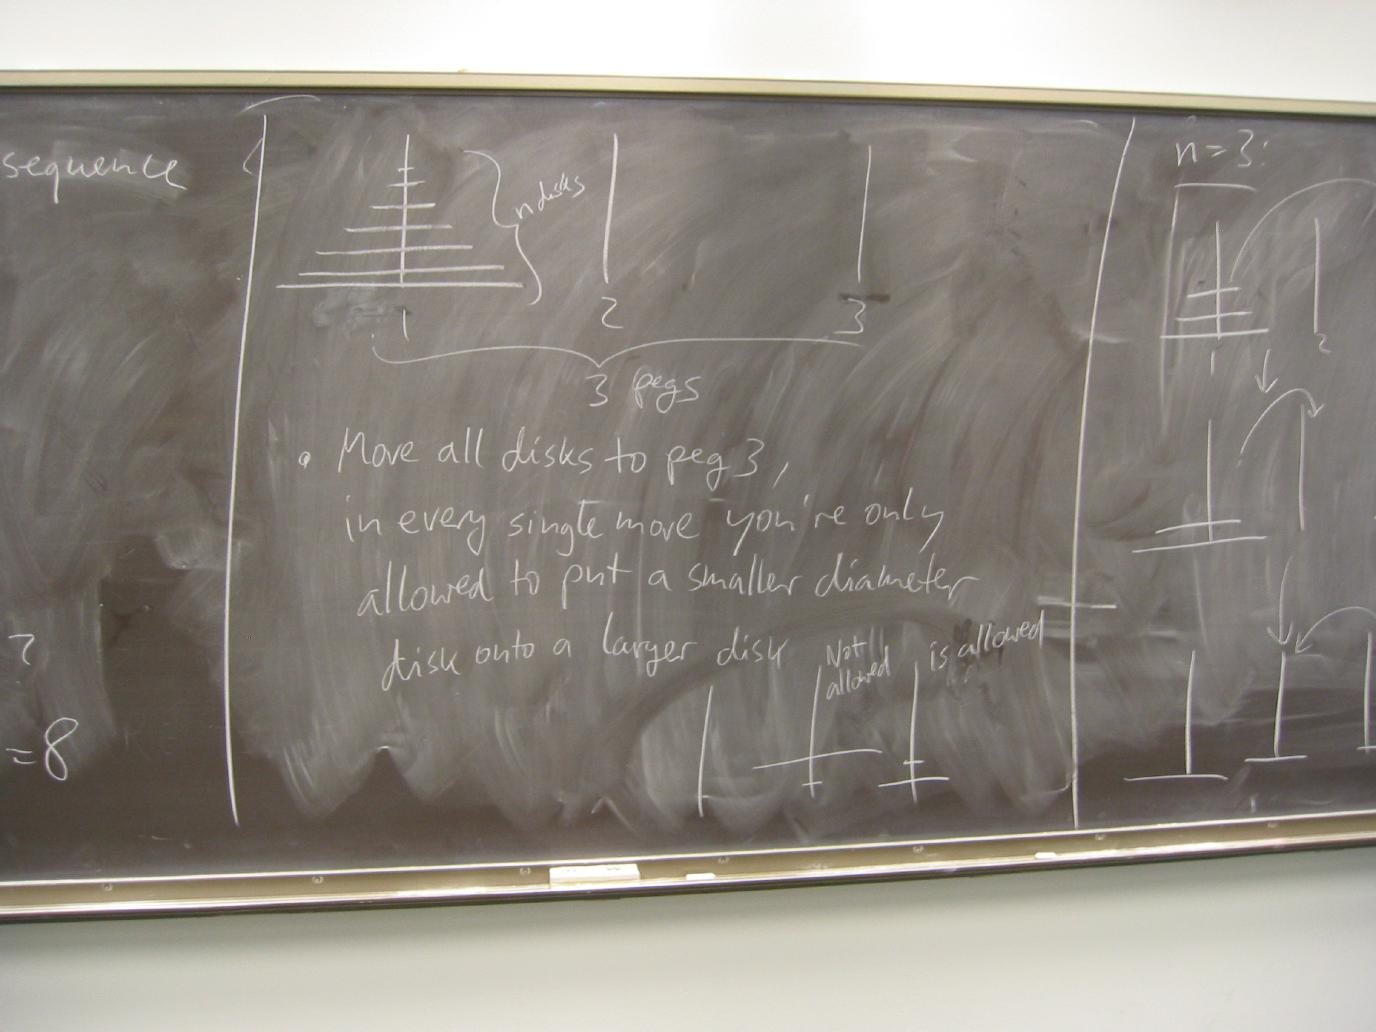 sequence
?
=8
n disks
1 2 3
3 pegs
• Move all disks to peg 3,
in every single move you're only
allowed to put a smaller diameter
disk onto a larger disk
Not
allowed
is allowed
n=3:
1 2